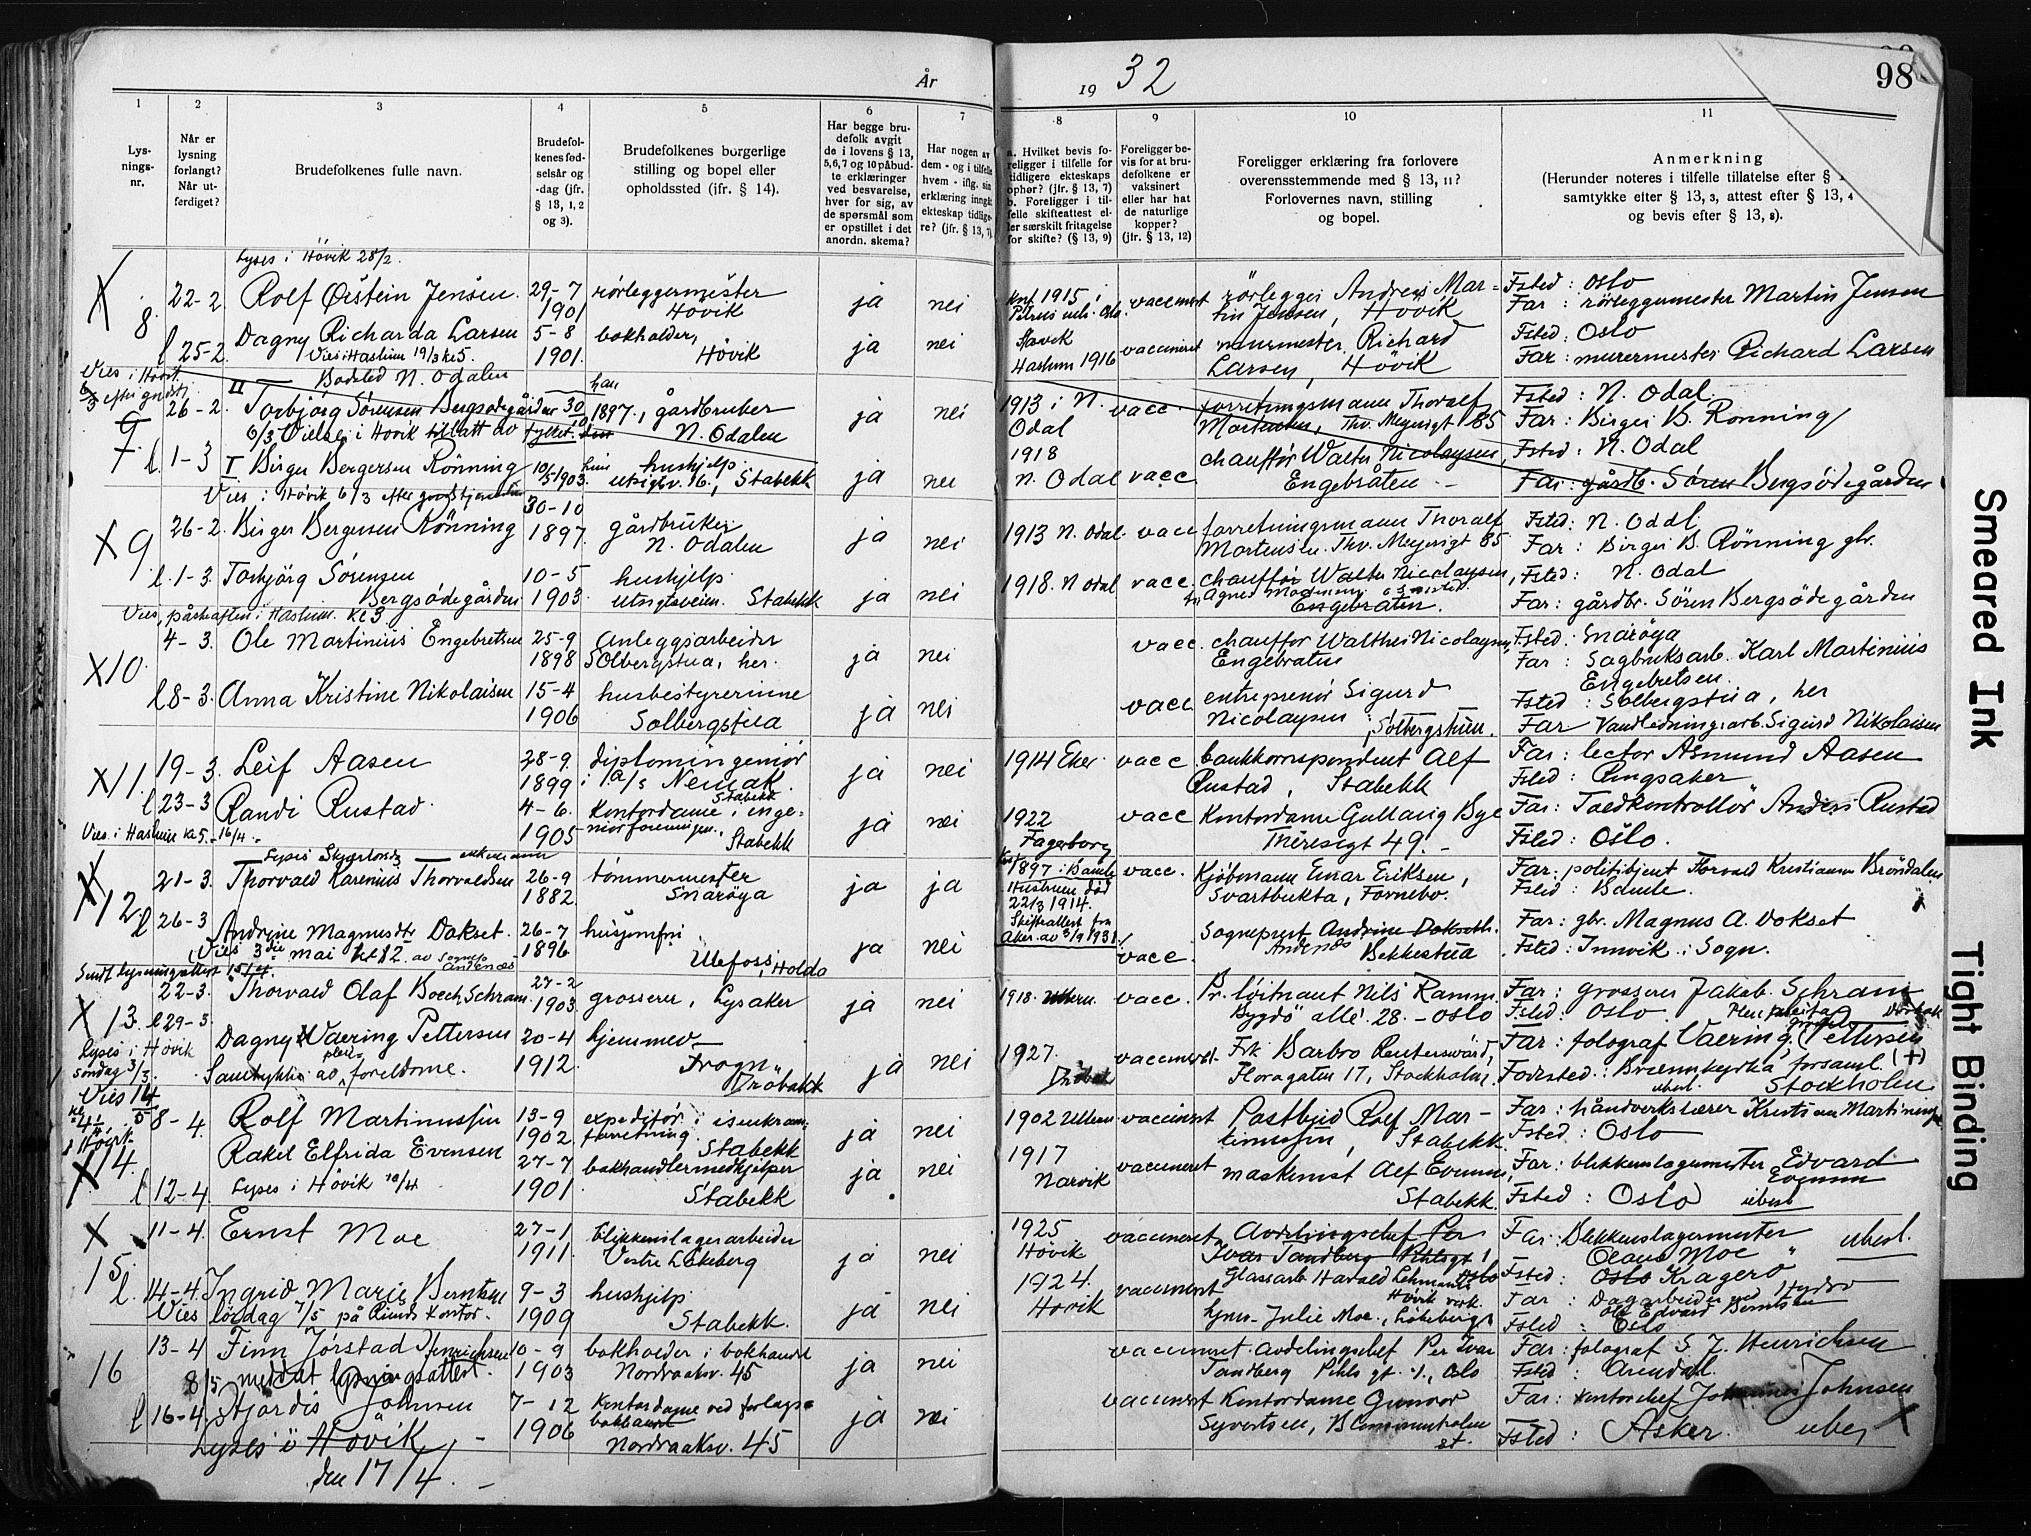 År
19 32
98
1
2
3
4
5
6
7
8
9
10
11
Lys-
nings-
nr.
Når er
lysning
forlangt?
Når ut-
ferdiget?
Brudefolkenes fulle navn.
Brudefol-
kenes fød-
selsår og
-dag (jfr.
§ 13, 1, 2
og 3).
Brudefolkenes borgerlige
stilling og bopel eller
opholdssted (jfr. § 14).
Har begge bru-
defolk avgit
de i lovens § 13,
5, 6, 7 og 10 påbud-
te erklæringer
ved besvarelse,
hver for sig, av
de spørsmål som
er opstillet i det
anordn. skema?
Har nogen av
dem - og i tilfelle
hvem - iflg. sin
erklæring inngå
ekteskap tidlige-
re? (jfr. § 13, 7)
a. Hvilket bevis fo-
religger i tilfelle for
tidligere ekteskaps
ophør? (jfr. § 13, 7)
b. Foreligger i til-
felle skifteattest el-
ler særskilt fritagelse
for skifte? (§ 13, 9)
Foreligger be-
vis for at bru-
defolkene er
vaksinert
eller har hat
de naturlige
kopper?
(jfr. § 13, 12)
Foreligger erklæring fra forlovere
overensstemmende med § 13, 11?
Forlovernes navn, stilling
og bopel.
Anmerkning
(Herunder noteres i tilfelle tillatelse efter §
samtykke efter § 13, 3, attest efter § 13, 4
og bevis efter § 13, 8).
Lyses i Hövik 28/2.
X 8. 22-2 Rolf Østein Jensen 29-7 1901 rörleggermester Hövik ja nei
Knf 1915, Petrus mh. Oslo vaccinert rörlegger Andreas Martin Jensen, Hövik Fsted: Oslo Far: rörleggermester Martin Jensen
l 25-2 Dagny Richarda Larsen 5-8 1901. bokholder, Hövik ja nei
Haslum 1916 vaccineret murmester Richard Larsen, Hövik Fsted: Oslo Far: murermester Richard Larsen
Vies i Haslum 19/3 kl 5.
Bosted N. Odalen
26-2 II Torbjörg Sörensen Bergsödegården 30 1897, gårdbruker N. Odalen ja nei
1913 i N. Odal vacc. forretningsmann Thoralf Martensen, Thv. Meyersgt 85 Fsted: N. Odal Far: Birger B. Rönning
6/3 Vielse i Hövik tillatt av fylket.
9 l. 1-3 I Birger Bergersen Rönning 10/5 1903. hushjelp. Utsigtsv. 16, Stabekk ja nei
1918 N. Odal vacc chauffør Walter Nicolaysen, Engebråten - Fsted: N. Odal Far: gårdb. Sören Bergsödegården
Vies i Hövik 6/3 efter gudstjenesten
X 9 26-2. Birger Bergersen Rönning 30-10 1897. gårdbruker N. Odalen ja nei
1913 N. Odal vacc forretningsmann Thoralf Martensen. Thv. Meyersgt 85 Fsted: N. Odal Far: Birger B. Rönning gbr.
l. 1-3. Torbjörg Sörensen Bergsödegården 10-5 1903. hushjelp. Utsigtsveien. Stabekk ja nei
1918. N Odal vacc. chauffør Walter Nicolaysen, Engebråten. Fsted: N. Odal Far: gårdbr. Sören Bergsödegården
Vies påskaften i Haslum. kl 3
X 10. 4-3. Ole Martinius Engebretsen 25-9 1898 Anleggsarbeider Solbergstua, her. ja nei
vacc. chauffør Walther Nicolaysen, Engebråten Fsted: Snaröya Far: Sagbruksarb. Karl Martinius Engebretsen.
l 8-3. Anna Kristine Nikolaisen 15-4 1906 husbestyrerinne Solbergstua ja nei
vacc entreprenör Sigurd Nicolaysen, Solbergstuen. Fsted: Solbergstua, her Far Vandledningsarb. Sigurd Nikolaisen
X 11. 19-3. Leif Aasen 28-9. 1899 diplomingeniör i A/s Nemak. Stabekk ja nei
1914 Eker vacc bankkorrespondent Alf Rustad, Stabekk Far: lector Asmund Aasen Fsted: Ringsaker
l 23-3 Randi Rustad. 4-6. 1905 kontordame i ingeniörforeningen. Stabekk ja nei
1922 Fagerborg vacc Kontordame Gullaug Bye Theresegt 49. - Far: Toldkontrollör Anders Rustad Fsted: Oslo.
Vies i Haslum kl 5 - 16/4.
X 12. 21-3. Thorvald Karenius Thorvaldsen 26-9 1882. tömmermester Snaröya ja ja
1897 i Bamle Hustruen död 22/3 1914. Skifteattest fra Aker av 3/9 1931 vacc. Kjöbmann Einar Eriksen, Svartbukta, Fornebo. Far: politibetjent Thorvald Kristiansen Bröndalen Fsted: Bamle.
l 26-3 Andrine Magnusdtr Dokset. 26-7 1896 husjomfru Ulefoss, Holda ja nei
vacc. Sogneprest Andenæs Bekkestua Far: gbr. Magnus A. Dokset Fsted: Innvik i Sogn.
Vies 3die mai kl 12 av Sognep. Andenæs
Sendt lysningsattest 15/4.
X 13. 22-3. Thorvald Olaf Boech Schram 27-2 1903 grosserer, Lysaker ja nei
1918. Ullern vacc. Pr. löitnant Nils Ramm. Bygdö allé 28. - Oslo Far: grosserer Jakob Schram Fsted: Oslo
l 29-3. Dagny Waering Pettersen 20-4 1912. hjemmev. Frogn, Dröbakk ja nei
1927. Dröbak vaccineret. Frk Barbro Reuterswärd, Floragaten 17, Stockholm. Far: fotograf Vaering Pettersen (+) Fødested: Brännkyrka forsaml. Stockholm
Samtykke av pleieforeldrene.
Lyses i Hövik söndag 3/3.
Vies 14/5 kl 4½ i Hövik
X 14. 8-4. Rolf Martinussen 13-9 1902 expeditör i isenkramforretning. Stabekk ja nei
1902 Ullern vaccineret Postbud Rolf Martinussen, Stabekk. Far: håndverkslærer Kristian Martinussen Fsted: Oslo
l 12-4 Rakel Elfrida Evensen 27-7 1901. bokhandlermedhjelper Stabekk ja nei
1917 Narvik vaccineret maskinist Alf Evensen, Stabekk. Far: blikkenslagermester Edvard Evensen Fsted: Oslo ubesl
Lyses i Hövik 10/4
X 15. 11-4. Ernst Moe 27-1 1911. blikkenslagerarbeider Vestre Løkeberg ja nei
1925 Hövik vaccineret Avdelingschef Per Ivar Tandberg Pihlsgt 1 Oslo Glassarb. Harald Lehmann Hövik verk. Far: Blikkenslagermester Olaus Moe Fsted: Oslo Kragerö ubesl.
l. 14-4. Ingrid Marie Berntsen 9-3 1909 hushjelp. Stabekk. ja nei
1924. Hövik vaccineret hjms. Julie Moe, Løkeberg Far: Dagarbeider ved Hydro Ole Edvard Berntsen Fsted: Oslo
Vies lördag 7/5 på Rieuds kontor.
16 13-4 Finn Jörstad Henrichsen 10-9 1903 bokholder i bokhandel Nordraaksv. 45 ja nei
vaccineret. avdelingschef Per Ivar Tandberg Pihls gt. 1, Oslo Far: fotograf S. J. Henrichsen Fsted: Arendal.
8/5 meddelt lysningsattest.
l 16-4. Hjördis Johnsen 7-12 1906 Kontordame ved forlags- bokhandel Nordraaksv. 45 ja nei
vaccineret Kontordame Gunvor Syvertsen, Blommenholm st. Far: kontorchef Johannes Johnsen Fsted: Asker. ubes
Lyses i Hövik den 17/4. -
Smeared Ink
Tight Binding